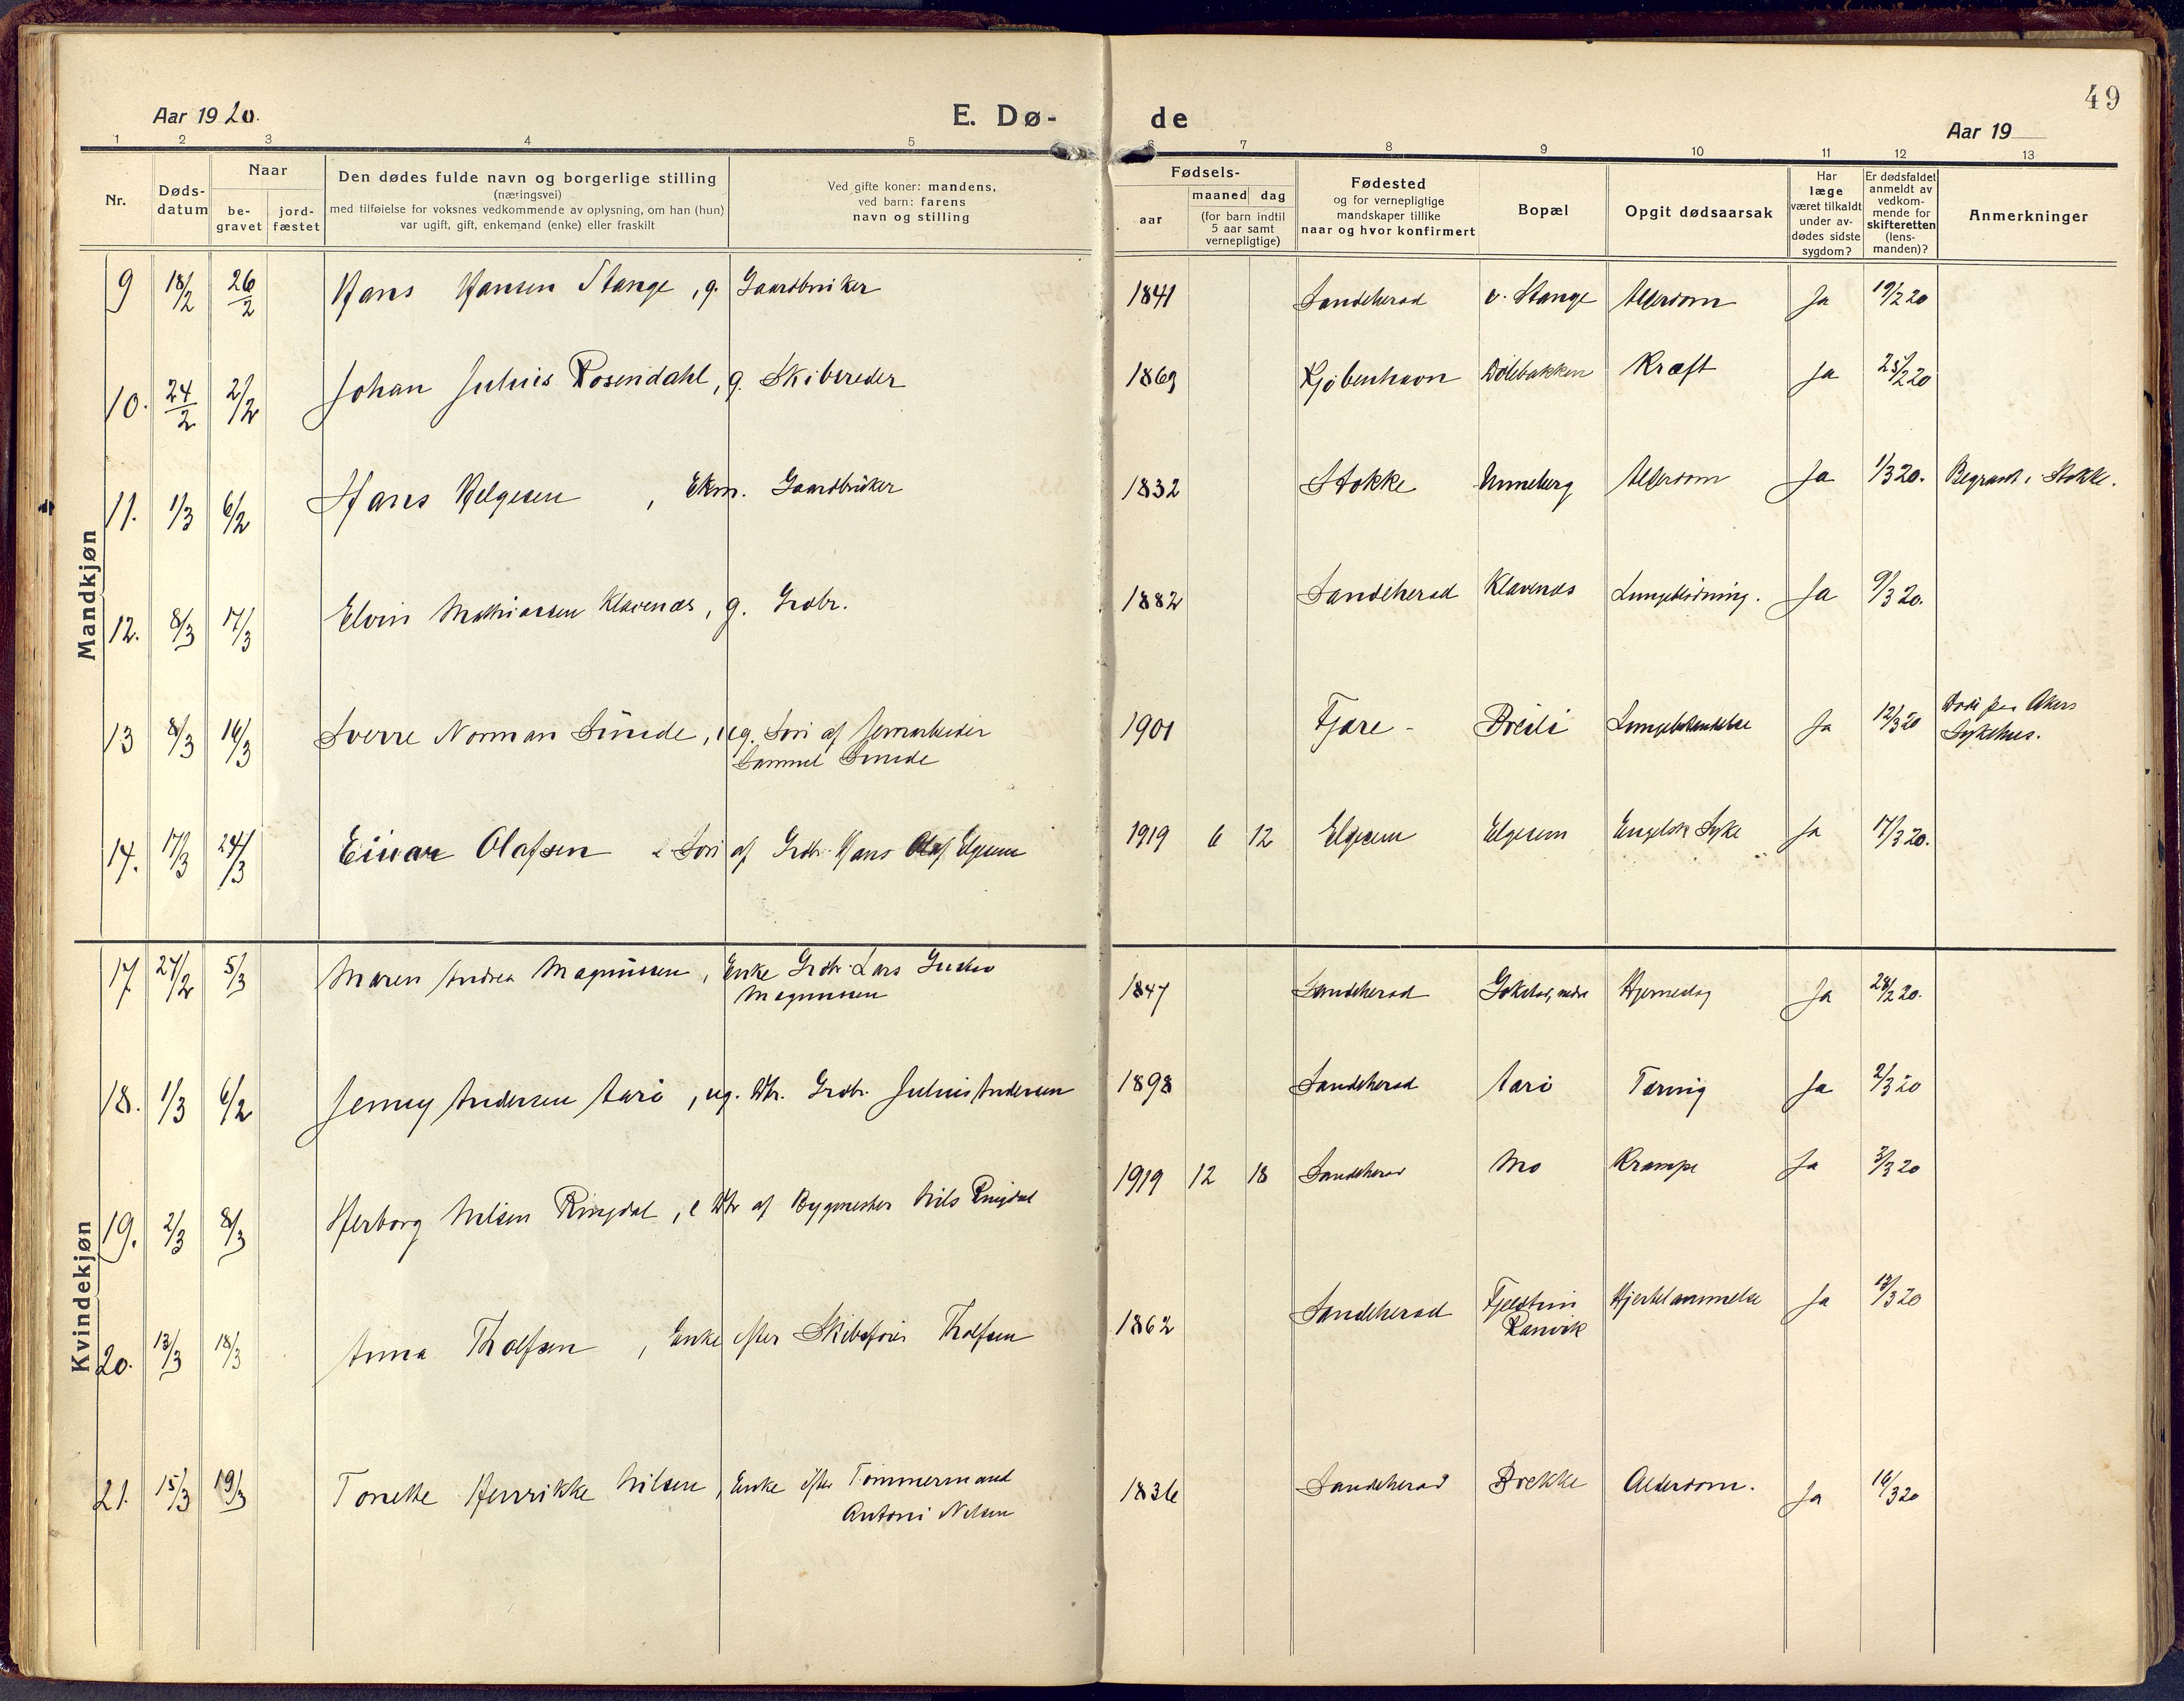 49
Aar 1920.
E. Dø-
de
Aar 19
1 2 3 4 5 6 7 8 9 10 11 12 13
Nr.
Døds-
datum
Naar
be-
gravet
jord-
fæstet
Den dødes fulde navn og borgerlige stilling
(næringsvei)
med tilføielse for voksnes vedkommende av oplysning, om han (hun)
var ugift, gift, enkemand (enke) eller fraskilt
Ved gifte koner: mandens,
ved barn: farens
navn og stilling
Fødsels-
aar
maaned dag
(for barn indtil
5 aar samt
vernepligtige)
Fødested
og for vernepligtige
mandskaper tillike
naar og hvor konfirmert
Bopæl
Opgit dødsaarsak
Har
læge
været tilkaldt
under av-
dødes sidste
sygdom?
Er dødsfaldet
anmeldt av
vedkom-
mende for
skifteretten
(lens-
manden)?
Anmerkninger
Mandkjøn
9 18/2 26/2 Hans Hansen Stange, g. Gaardbruker 1841 Sandeherad v. Stange Alderdom Ja 19/2 20
10. 24/2 2/2 Johan Julius Rosendahl, g. Skibsreder 1869 Kjøbenhavn Dölebakken Kræft Ja 25/2 20
11. 1/3 6/2 Hans Helgesen, Ekm. Gaardbruker 1832 Stokke Unneberg Alderdom Ja 1/3 20. Begravet i Stokke.
12. 8/3 17/3 Elvin Mathiassen Klavenæs, g. Grdbr. 1882 Sandeherad Klavenæs Lungeblödning. Ja 9/3 20.
13 8/3 16/3 Sverre Norman Sunde, ug. Søn af Jernarbeider 1901 Fjære - Breili Lungebetændelse Ja 12/3 20 Död paa Akers
Samuel Sunde
Sykehus.
14. 17/3 24/3 Einar Olafsen e Søn af Grdbr. Hans Olaf Elgesem 1919 6 12 Elgesem Elgesem Engelsk Syke Ja 17/3 20.
Kvindekjøn
17 27/2 5/3 Maren Andrea Magnussen, Enke Grdbr. Lars Gustav 1847 Sandeherad Gokstad, nedre Hjerneslag Ja 28/2 20.
Magnussen
18. 1/3 6/2 Jenny Andersen Aarö, ug. Dtr. Grdbr. Julius Andersen 1898 Sandeherad Aarö Tæring Ja 2/3 20
19. 2/3 8/3 Herborg Nilsen Ringdal, e Dtr af Bygmester Nils Ringdal 1919 12 18 Sandeherad Mo Krampe Ja 3/3 20
20. 13/3 18/3 Anna Tholfsen, Enke efter Skibsförer Tholfsen 1862 Sandeherad Fjeldtun Hjertelammelse Ja 13/3 20
Ranvik
21. 15/3 19/3 Tonette Henrikke Nilsen, Enke efter Tömmermand 1836 Sandeherad Brekke Alderdom. Ja 16/3 20
Antoni Nilsen